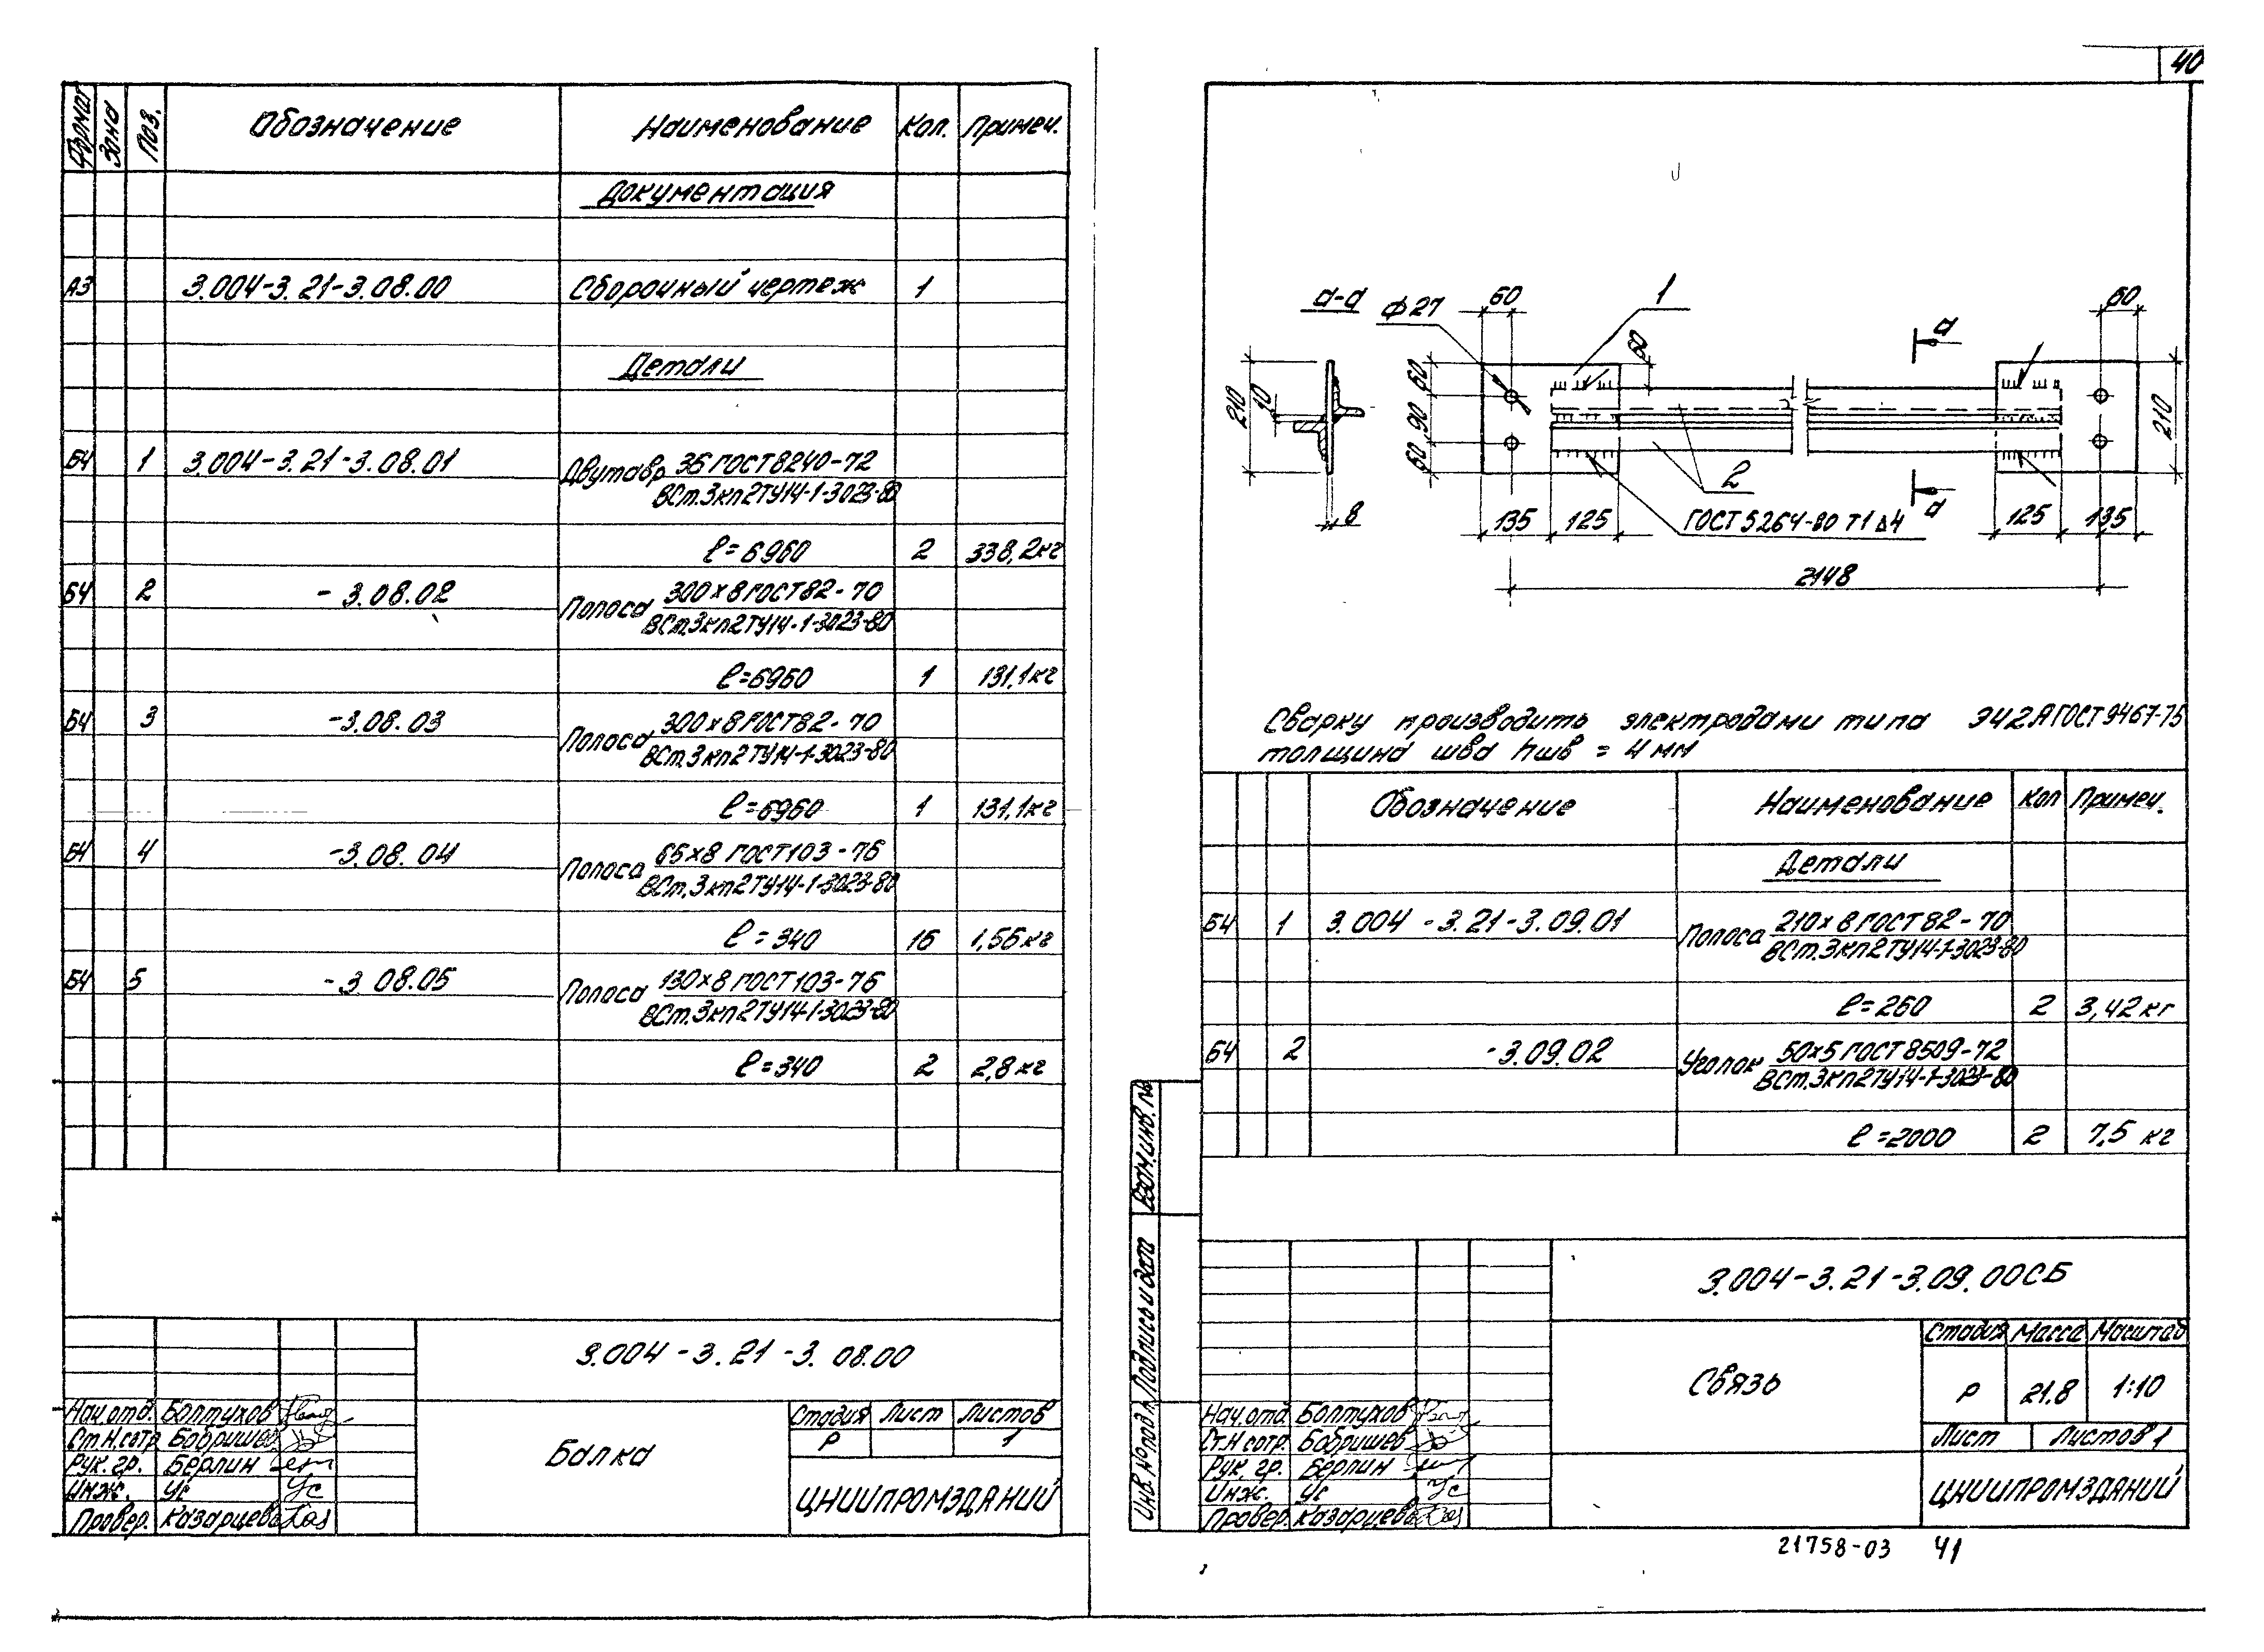 40
Формат Зона Поз. Обозначение Наименование Кол. Примеч.
Документация
А3 3.004-3.21-3.08.00 Сборочный чертеж 1
Детали
Б4 1 3.004-3.21-3.08.01 Двутавр 36 ГОСТ 8240-72
ВСт.3кп2ТУ14-1-3023-80
ℓ=6960 2 338,2кг
Б4 2 -3.08.02 Полоса 300х8 ГОСТ 82-70
ВСт.3кп2ТУ14-1-3023-80
ℓ=6960 1 131,1кг
Б4 3 -3.08.03 Полоса 300х8 ГОСТ 82-70
ВСт.3кп2ТУ14-1-3023-80
ℓ=6960 1 131,1кг
Б4 4 -3.08.04 Полоса 65х8 ГОСТ 103-76
ВСт.3кп2ТУ14-1-3023-80
ℓ=340 16 1,56кг
Б4 5 -3.08.05 Полоса 130х8 ГОСТ 103-76
ВСт.3кп2ТУ14-1-3023-80
ℓ=340 2 2,8кг
3.004-3.21-3.08.00
Нач.отд. Болтухов
Ст.Н.сотр Бобришев
Рук.гр. Берлин
Инж. Ус
Провер. Казарцева
Балка
Стадия Лист Листов
Р 1
ЦНИИПРОМЗДАНИЙ
а-а ф27 60 1 60
а
60 60
210 10 90 210
60
8 2 а
135 125 ГОСТ 5264-80 Т1 ⊿4 125 135
2148
Сварку производить электродами типа Э42А ГОСТ 9467-75
толщина шва hшв = 4мм
Обозначение Наименование Кол Примеч.
Детали
Б4 1 3.004-3.21-3.09.01 Полоса 210х8 ГОСТ 82-70
ВСт.3кп2ТУ14-1-3023-80
ℓ=260 2 3,42кг
Б4 2 -3.09.02 Уголок 50х5 ГОСТ 8509-72
ВСт.3кп2ТУ14-1-3023-80
ℓ=2000 2 7,5 кг
Взам.инв.№
Подпись и дата
Инв.№подл.
3.004-3.21-3.09.00СБ
Нач.отд. Болтухов
Ст.Н сотр. Бобришев
Рук. гр. Берлин
Инж. Ус
Провер. Казарцева
Связь
Стадия Масса Масштаб
Р 21.8 1:10
Лист Листов 1
ЦНИИПРОМЗДАНИЙ
21758-03 41